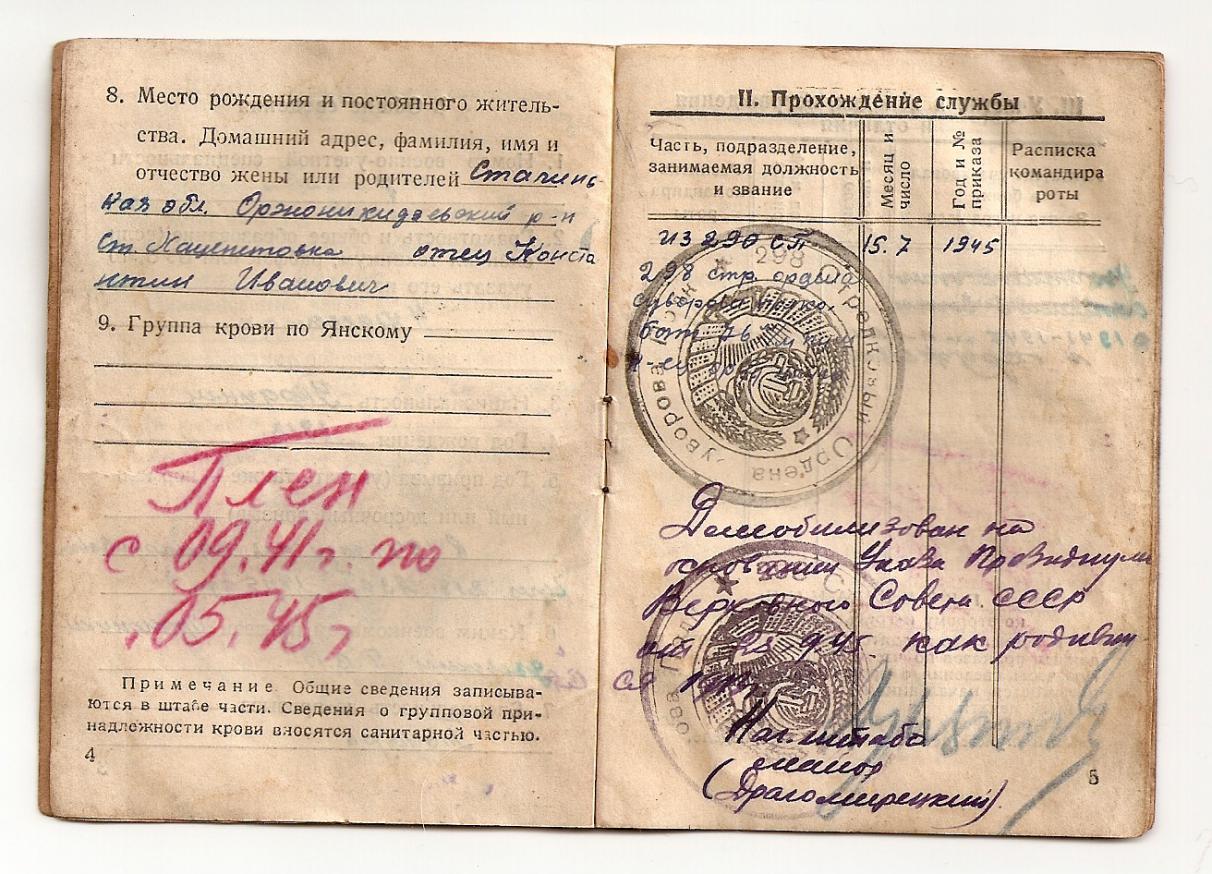 8. Место рождения и постоянного житель-
ства. Домашний адрес, фамилия, имя и
отчество жены или родителей Сталинс-
кая обл. Орджоникидзевский р-н
Ст. Хацепетовка отец Конста
нтин Иванович
9. Группа крови по Янскому
Плен
с 09.41г. по
.05.45г
Примечание. Общие сведения записыва-
ются в штабе части. Сведения о групповой при-
надлежности крови вносятся санитарной частью.
4
II. Прохождение службы
Часть, подразделение,
занимаемая должность
и звание
Месяц и
число
Год и №
приказа
Расписка
командира
роты
из 290 СП 15.7 1945
298 стр. ордена
суворова
298 Стрелковый Ордена Суворова
Демобилизован на
основании Указа Президиума
Верховного Совета СССР
от 25 9 45г. как родивши
ся
Нач. штаба
майор
(Драгомирецкий)
5